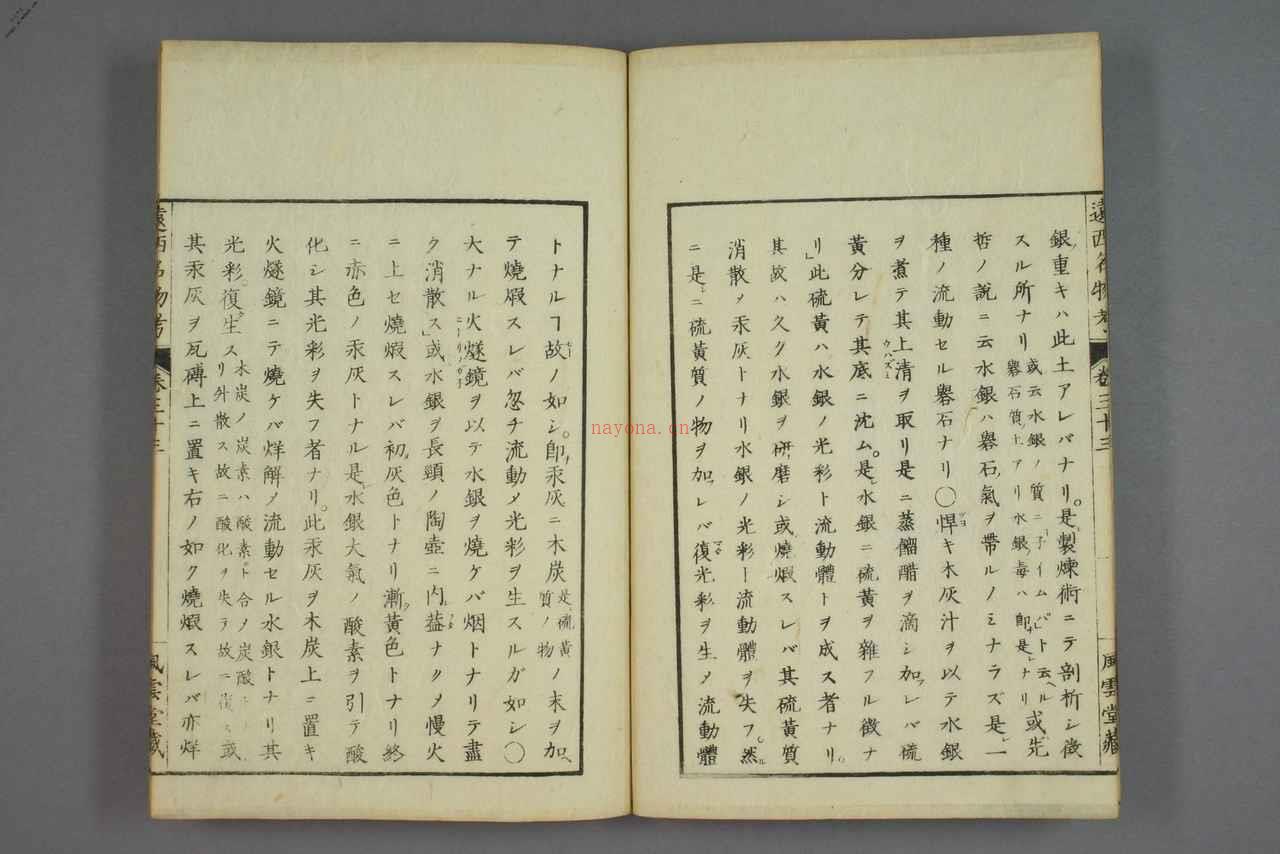 遠西名物考
卷三十三
一
風雲堂藏
銀重キハ此土アレバナリ。是製煉術ニテ剖析シ徴
スル所ナリ 或云水銀ノ質ニ「ネイムバ」ト云ヘル礜石質ノ上アリ水銀ノ毒ハ即是ナリ 或先
哲ノ説ニ云水銀ハ礜石ノ氣ヲ帶ルノミナラズ是一
種ノ流動セル礜石ナリ〇悍キ木灰汁ヲ以テ水銀
ヲ煮テ其上清ヲ取リ是ニ蒸餾醋ヲ滴シ加レバ硫
黄分レテ其底ニ沈ム。是水銀ニ硫黄ヲ雜フル徴ナ
リ」此硫黄ハ水銀ノ光彩ト流動體トヲ成ス者ナリ。
其故ハ久ク水銀ヲ研磨シ或燒煆スレバ其硫黄質
消散メ汞灰トナリ水銀ノ光彩ト流動體ヲ失フ。然
ニ是ニ硫黄質ノ物ヲ加レバ復光彩ヲ生メ流動體
トナルヿ故ノ如シ。即汞灰ニ木炭 是硫黄質ノ物 ノ末ヲ加
テ燒煆スレバ忽チ流動メ光彩ヲ生スルガ如シ〇
大ナル火燧鏡ヲ以テ水銀ヲ燒ケバ烟トナリテ盡
ク消散ス」或水銀ヲ長頸ノ陶壺ニ内葢ナクメ慢火
ニ上セ燒煆スレバ初灰色トナリ漸黄色トナリ終
ニ赤色ノ汞灰トナル是水銀大氣ノ酸素ヲ引テ酸
化シ其光彩ヲ失フ者ナリ。此汞灰ヲ木炭上ニ置キ
火燧鏡ニテ燒ケバ烊解メ流動セル水銀トナリ其
光彩復生ス 木炭ノ炭素ハ酸素ト合メ炭酸トナリ外散ス故ニ酸化ヲ失テ故ニ復ス 或
其汞灰ヲ瓦磚上ニ置キ右ノ如ク燒煆スレバ亦烊
遠西名物考
卷三十三
風雲堂藏
nayona.cn